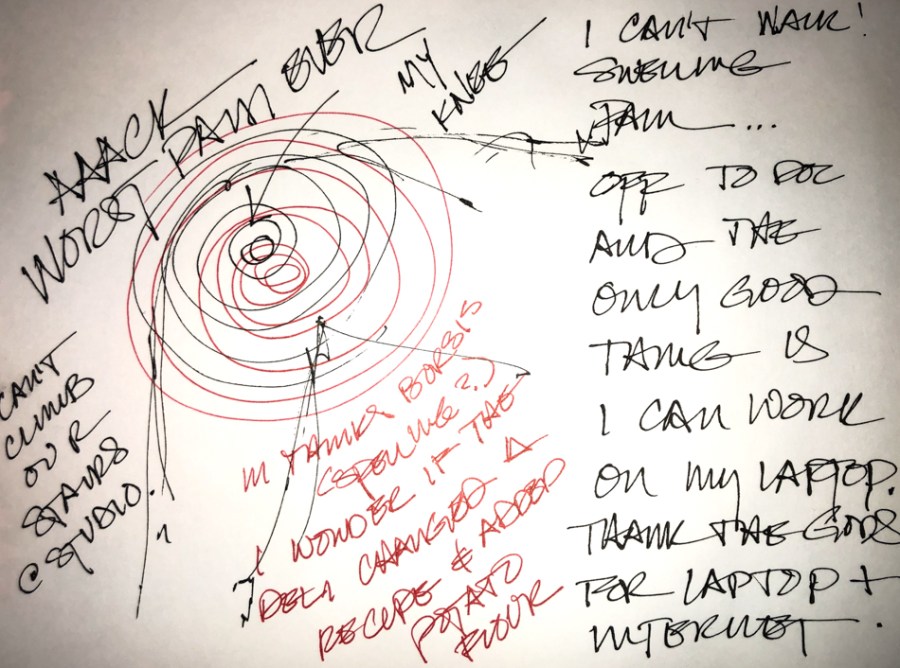 AAACK
WORST PAIN EVER
MY
KNEE
CAN'T
CLIMB
OUR
STAIRS
@ STUDIO.
(SPELLING?)
I WONDER IF THE
DELI CHANGED
RECIPE & ADDED
POTATO
FLOUR
I CAN'T WALK!
SWELLING
PAIN...
OFF TO DOC
AND THE
ONLY GOOD
THING IS
I CAN WORK
ON MY LAPTOP.
THANK THE GODS
FOR LAPTOP +
INTERNET.